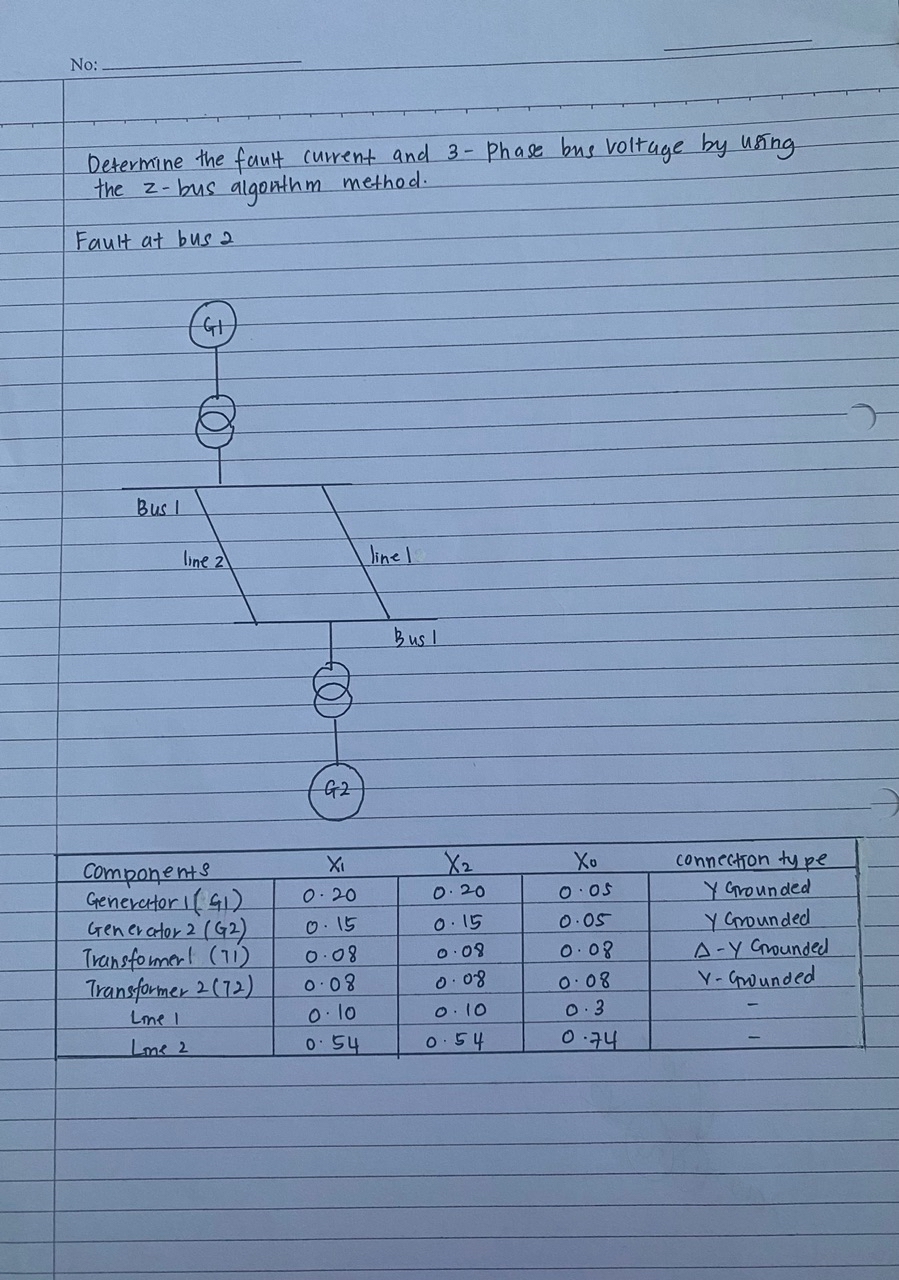 No:
Determine the fault current and 3-phase bus voltage by using
the z-bus algorithm method.
Fault at bus 2
G1
Bus 1
line 2
line 1
Bus 1
G2
Components X1 X2 X0 connection type
Generator 1 (G1) 0.20 0.20 0.05 Y Grounded
Generator 2 (G2) 0.15 0.15 0.05 Y Grounded
Transformer 1 (T1) 0.08 0.08 0.08 Δ-Y Grounded
Transformer 2 (T2) 0.08 0.08 0.08 Y-Grounded
Line 1 0.10 0.10 0.3 -
Line 2 0.54 0.54 0.74 -